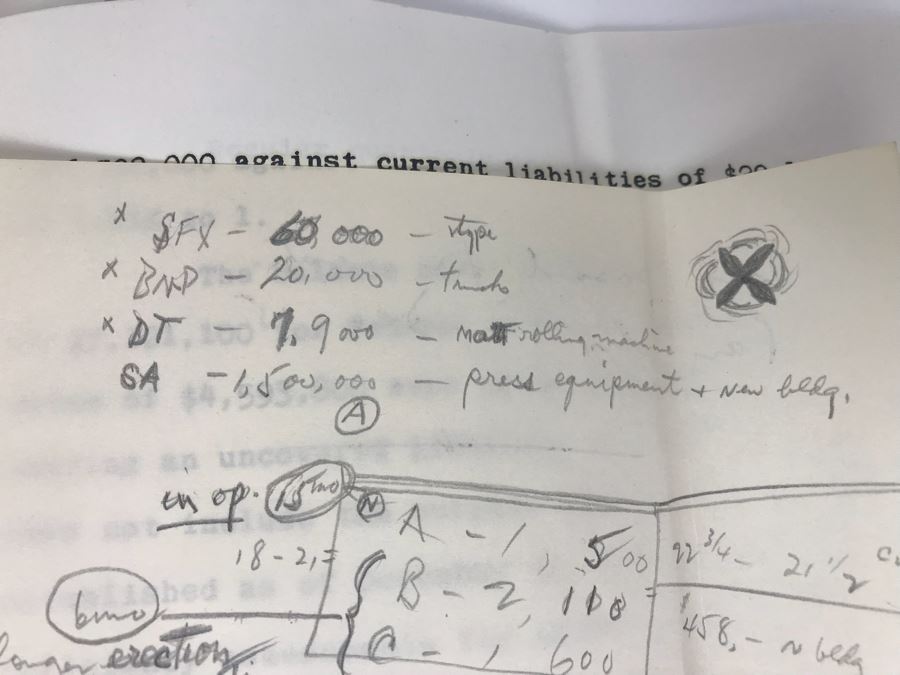 000 against current liabilities of
x SFX - 60,000 - type
x BND - 20,000 - trucks
x DT - 7,900 - Matt rolling machine
SA - 1,500,000 - press equipment + New bldg.
A
in op. 15 mo N
A - 1, 500
22 3/4 - 21 1/2
18 - 21 =
B - 2, 100
6 mo
$458, - N bldg
C - 1, 600
longer erection